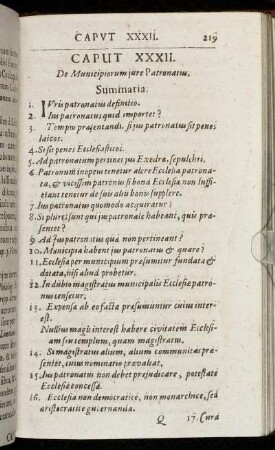 CAPVT XXXII. 219
CAPUT XXXII.
De Municipiorum jure Patronatus.
Summaria.
1. IVris patronatus definitio.
2. Ius patronatus quid importet?
3. Tempus præsentandi, si jus patronatus sit penes
laicos.
4. Si sit penes Ecclesiasticos.
5. Ad patronatum pertinet jus Exedræ, sepulchri.
6. Patronum inopem tenetur alere Ecclesia patrona-
ta, & vicissim patronus si bona Ecclesiæ non suffi-
ciant tenetur de suis aliis bonis supplere.
7. Ius patronatus quomodo acquiratur?
8. Si plures sunt qui jus patronale habeant, quis præ-
sentet?
9 Ad jus patronatus quæ non pertineant?
10. Municipia habent jus patronatus & quare?
11. Ecclesia per municipium præsumitur fundata &
dotata, nisi aliud probetur.
12. In dubio magistratus municipalis Ecclesiæ patro-
nus censetur.
13. Expensa ab eo facta præsumuntur cuius inter-
est.
Nullius magis interest habere civitatem Ecclesi-
am seu templum, quam magistratus.
14. Si magistratus alium, alium communitas præ-
sentet, cuius nominatio prævaleat.
15. Ius patronatus non debet præjudicare, potestati
Ecclesiæ concessæ.
16. Ecclesia non democraticè, non monarchicè, sed
aristocraticè gubernanda.
Q 17. Cura